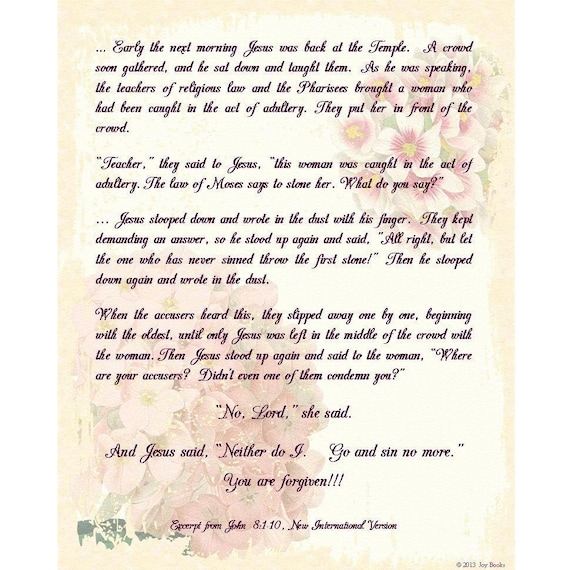 ... Early the next morning Jesus was back at the Temple. A crowd
soon gathered, and he sat down and taught them. As he was speaking,
the teachers of religious law and the Pharisees brought a woman who
had been caught in the act of adultery. They put her in front of the
crowd.
"Teacher," they said to Jesus, "this woman was caught in the act of
adultery. The law of Moses says to stone her. What do you say?"
... Jesus stooped down and wrote in the dust with his finger. They kept
demanding an answer, so he stood up again and said, "All right, but let
the one who has never sinned throw the first stone!" Then he stooped
down again and wrote in the dust.
When the accusers heard this, they slipped away one by one, beginning
with the oldest, until only Jesus was left in the middle of the crowd with
the woman. Then Jesus stood up again and said to the woman, "Where
are your accusers? Didn't even one of them condemn you?"
"No, Lord," she said.
And Jesus said, "Neither do I. Go and sin no more."
You are forgiven!!!
Excerpt from John 8:1-10, New International Version
© 2013 Joy Books